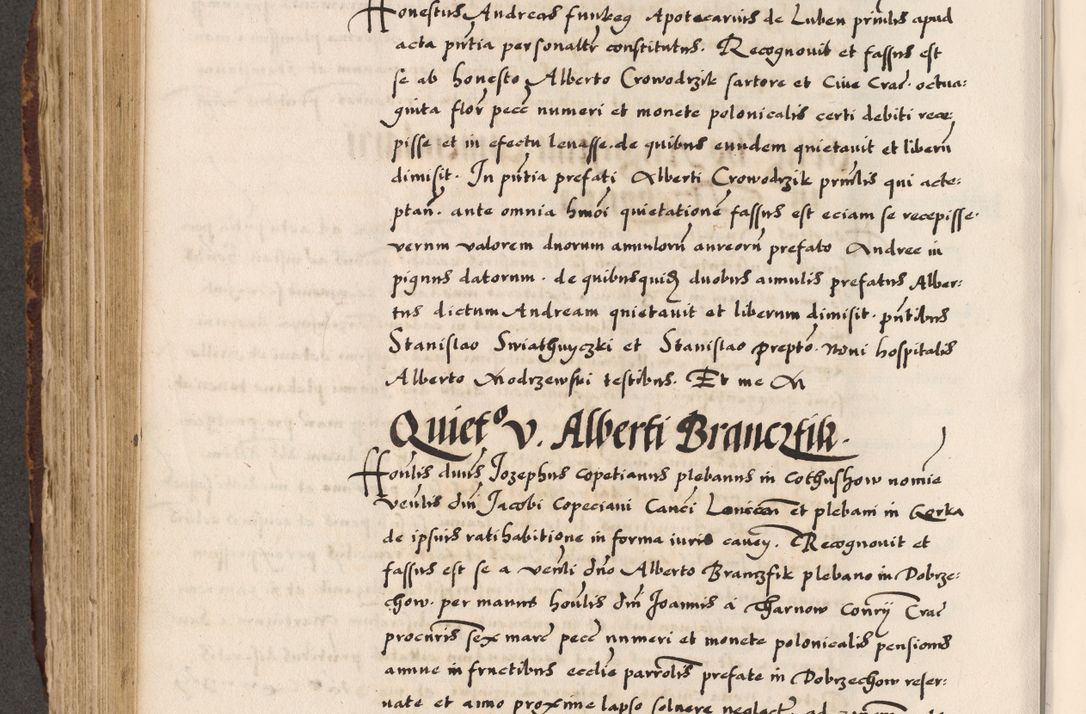 Honestus Andreas funkeg Apotecarius de Luben prñlis apud
acta pñtia personalr constitutus. Recognovit et fassus est
se ab honesto Alberto Crowodrzik sartore et Cive Crac octua:
ginta flor pecc numeri et monete polonicalis certi debiti rece:
pisse et in efectu levasse. de quibus eundem quietavit et liberu
dimisit. In pñtia prefati Alberti Crowodrzik prñlis qui acte:
ptañ. ante omnia hmoi quietationē fassus est eciam se recepisse.
verum valorem duorum annuloru aureoru prefato Andree in
pignus datorum. de quibusquidʒ duobus annulis prefatus Alber:
tus dictum Andream quietavit et liberum dimisit. pñtibus
Stanislao Swiathuyczki et Stanislao prepto. novi hospitalis
Alberto Modrzewski testibus. Et me
Quiet⁰ v. Alberti Branczfik.
Honlis dnus Jozephus copetianus plebanus in Cothushow nomie
venlis dm Jacobi Copeciani Canci et plebani in Gorka
de ipsius ratihabitione in forma iuris cavey. Recognouit et
fassus est se a venli dno Alberto Branczfik plebano in Dobrze:
chow. per manus honlis dm Joannis á Tharnow Conrij Crac
procuris sex marc pecc numeri et monete polonicalis pensionis
annue in fructibus ecclie parrolis prefate in Dobrzechow reser:
uate et anno proxime lapso solvere neglect